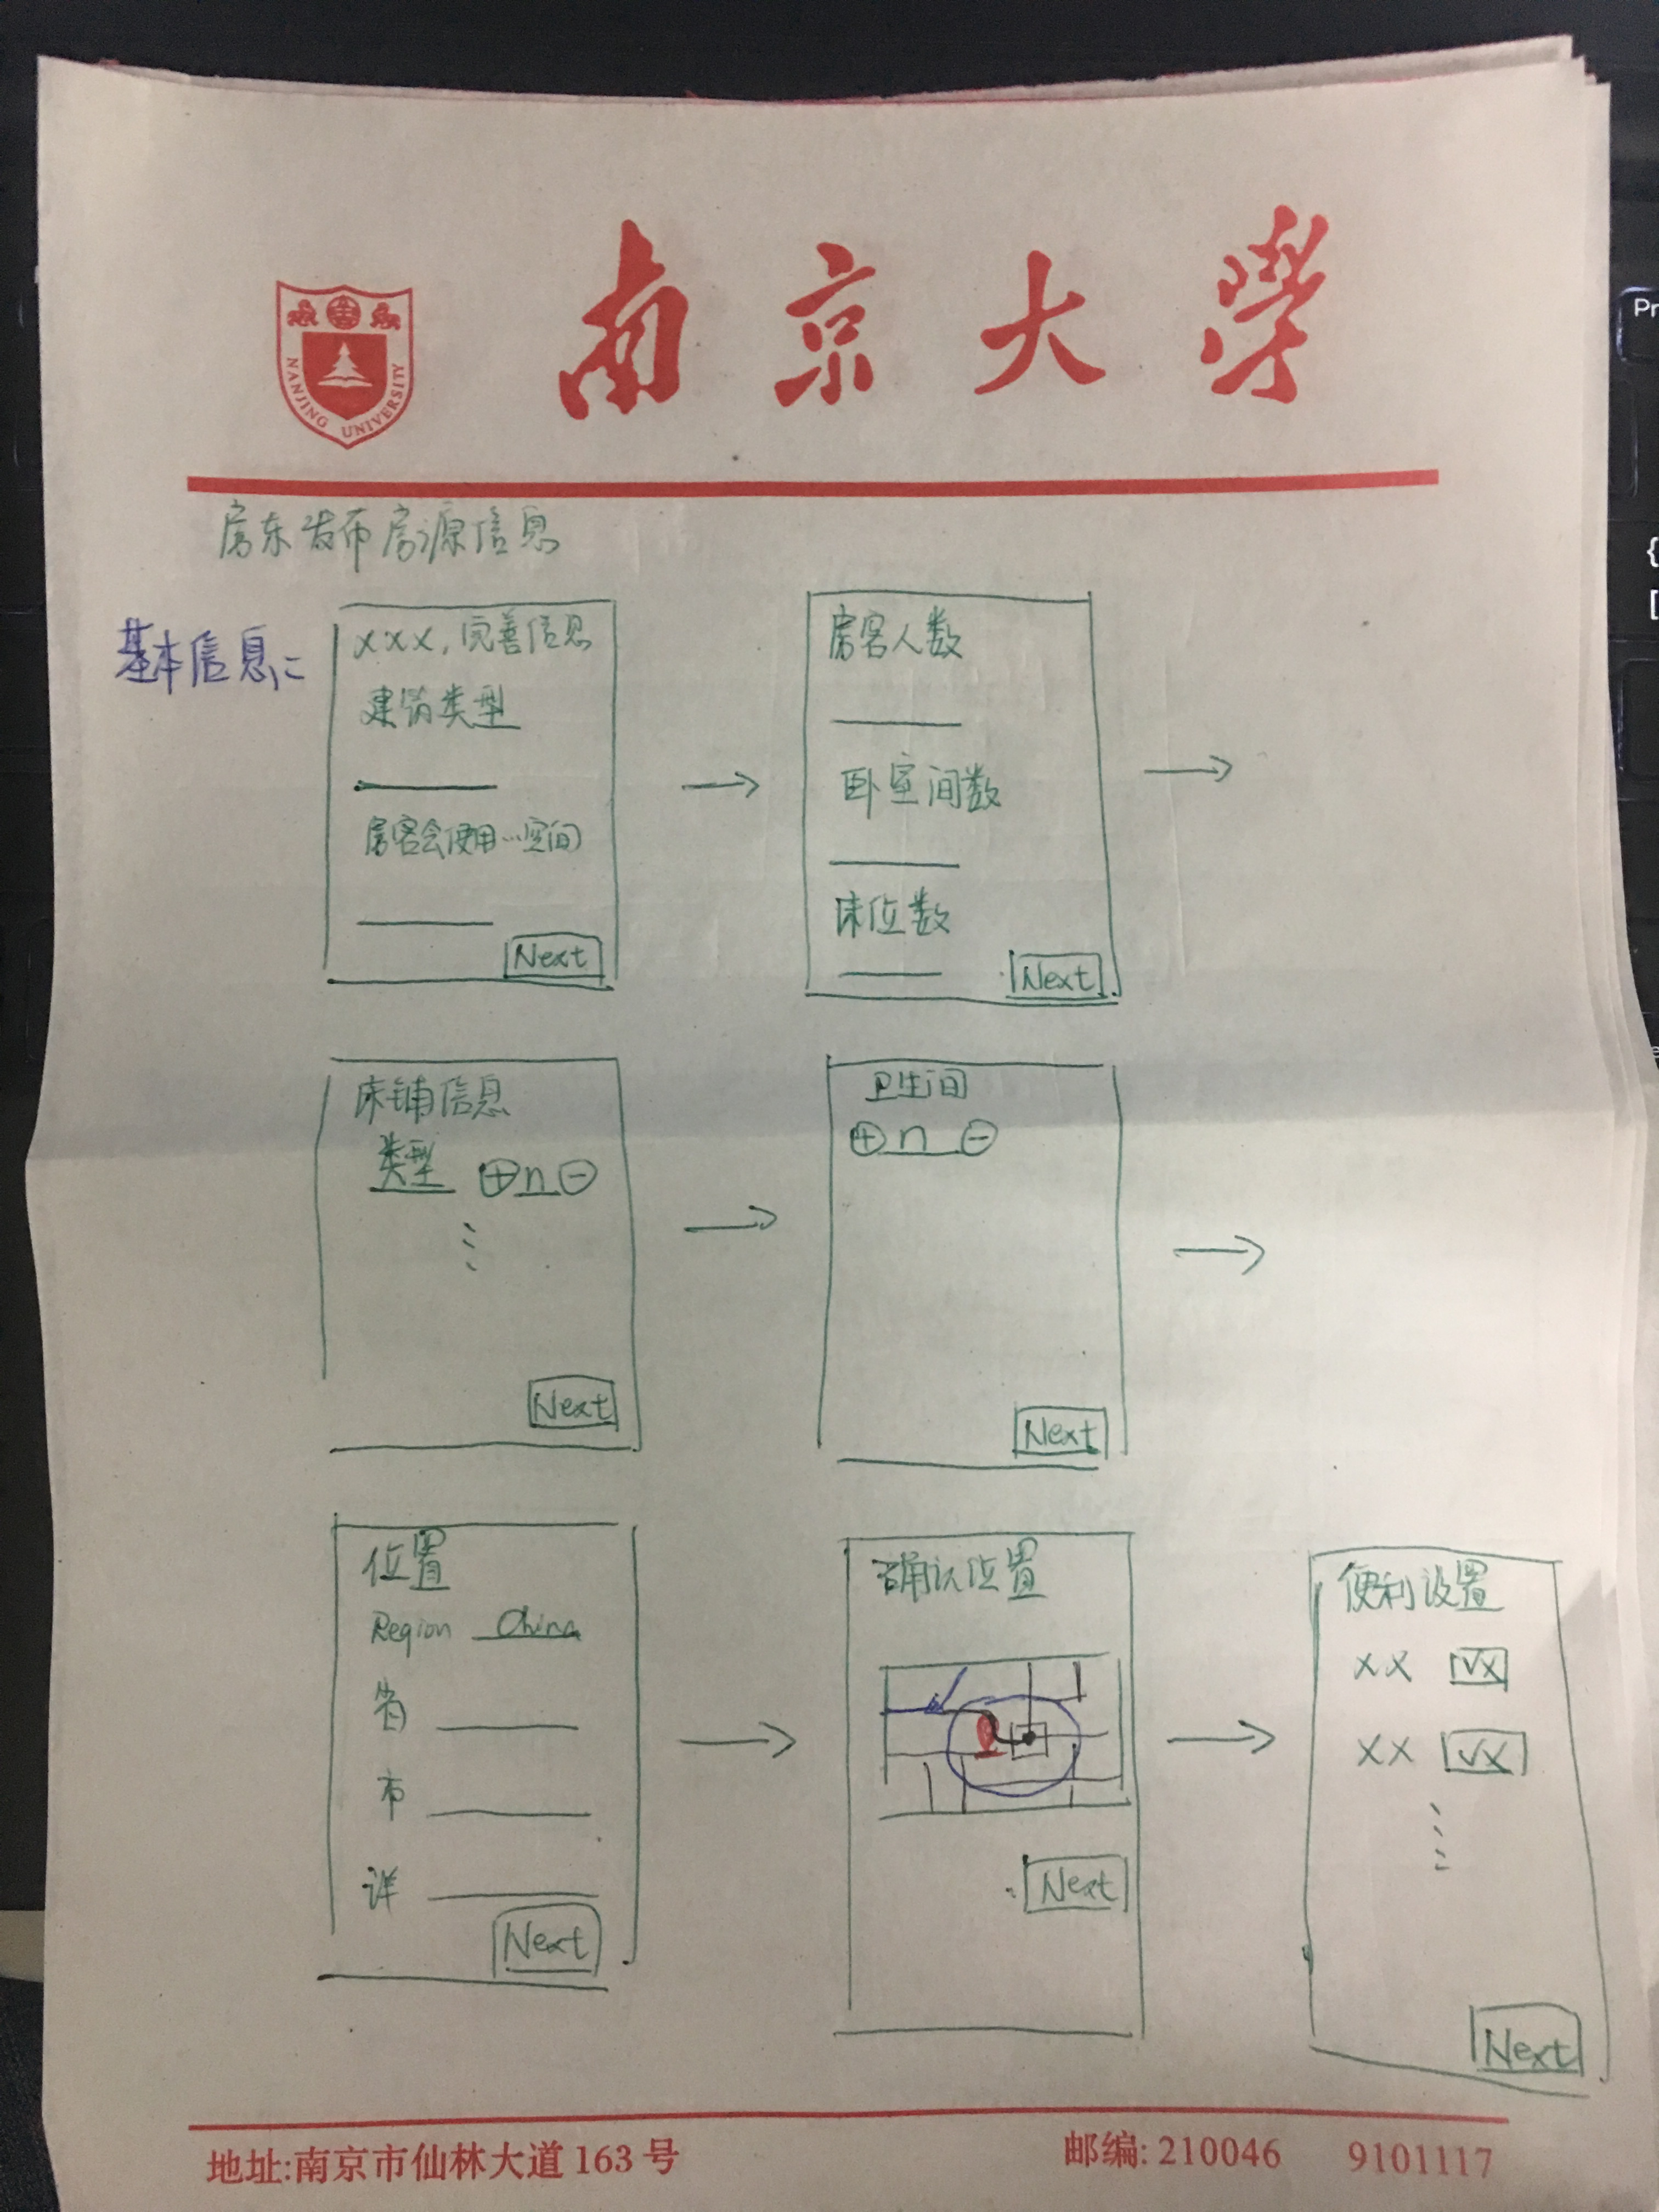 南京大學
NANJING UNIVERSITY
房东发布房源信息
基本信息:
XXX,完善信息
建筑类型
房客会使用…空间
Next
房客人数
卧室间数
床位数
Next
床铺信息
类型 + n -
Next
卫生间
+ n -
Next
位置
Region China
省
市
详
Next
确认位置
Next
便利设置
XX √X
XX √X
Next
地址:南京市仙林大道163号
邮编:210046 9101117
Pr
{
[